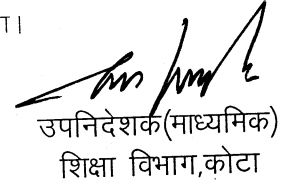 TI
उपनिदेशक(माध्यमिक)
शिक्षा विभाग,कोटा